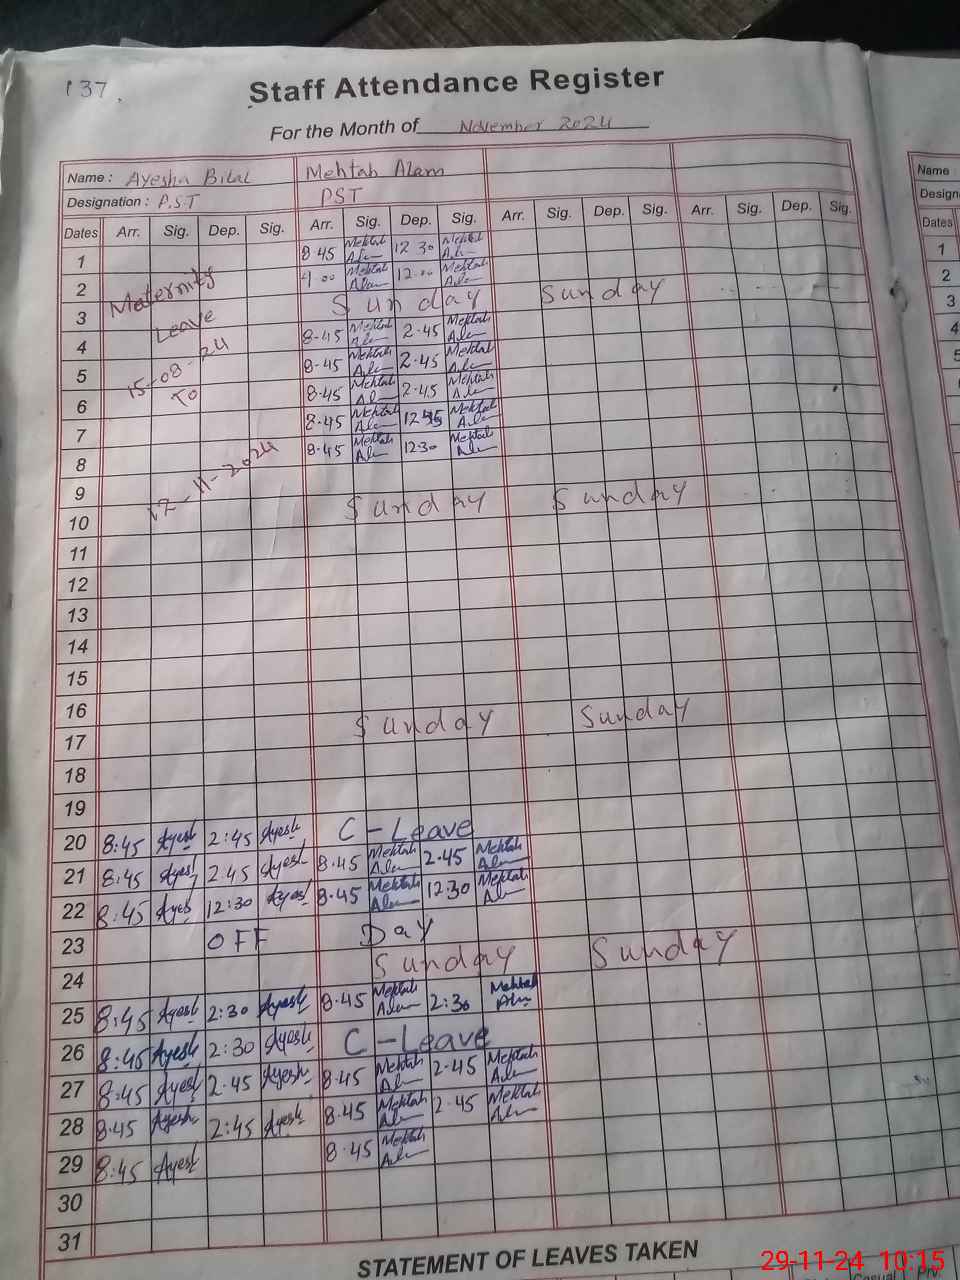 137
Staff Attendance Register
For the Month of November 2024
Name : Ayesha Bilal Mehtab Alam
Name
Designation : P.S.T PST
Design
Dates Arr. Sig. Dep. Sig. Arr. Sig. Dep. Sig. Arr. Sig. Dep. Sig. Arr. Sig. Dep. Sig.
Dates
1 8·45 Mehtab Alam 12 30 Mehtab Alam
1
2 9·00 Mehtab Alam 12·00 Mehtab Alam
2
Maternity
3 Sunday Sunday
3
Leave
4 8-45 Mehtab Alam 2·45 Mehtab Alam
4
15-08-24
5 8·45 Mehtab Alam 2·45 Mehtab Alam
5
To
6 8·45 Mehtab Alam 2·45 Mehtab Alam
6
7 8·45 Mehtab Alam Mehtab Alam
7
8 8·45 Mehtab Alam 12·30 Mehtab Alam
8
-11-2024
9
9
10 Sunday Sunday
10
11
11
12
12
13
13
14
14
15
16
17 Sunday Sunday
18
19
20 8:45 Ayesh 2:45 Ayesh C-Leave
21 8:45 Ayesh 2:45 Ayesh 8·45 Mehtab Alam 2·45 Mehtab Alam
22 8:45 Ayes 12:30 Ayes 8·45 Mehtab Alam 12:30 Mehtab Alam
23 OFF Day
24 Sunday Sunday
25 8:45 Ayesh 2:30 Ayesh 8·45 Mehtab Alam 2:30 Mehtab Alam
26 8:45 Ayesh 2:30 Ayesh C-Leave
27 8:45 Ayesh 2-45 Ayesh 8·45 Mehtab Alam 2·45 Mehtab Alam
28 8:45 Ayesh 2:45 Ayesh 8·45 Mehtab Alam 2·45 Mehtab Alam
29 8:45 Ayesh 8·45 Mehtab Alam
30
31
STATEMENT OF LEAVES TAKEN
Casual Prv.
29-11-24 10:15